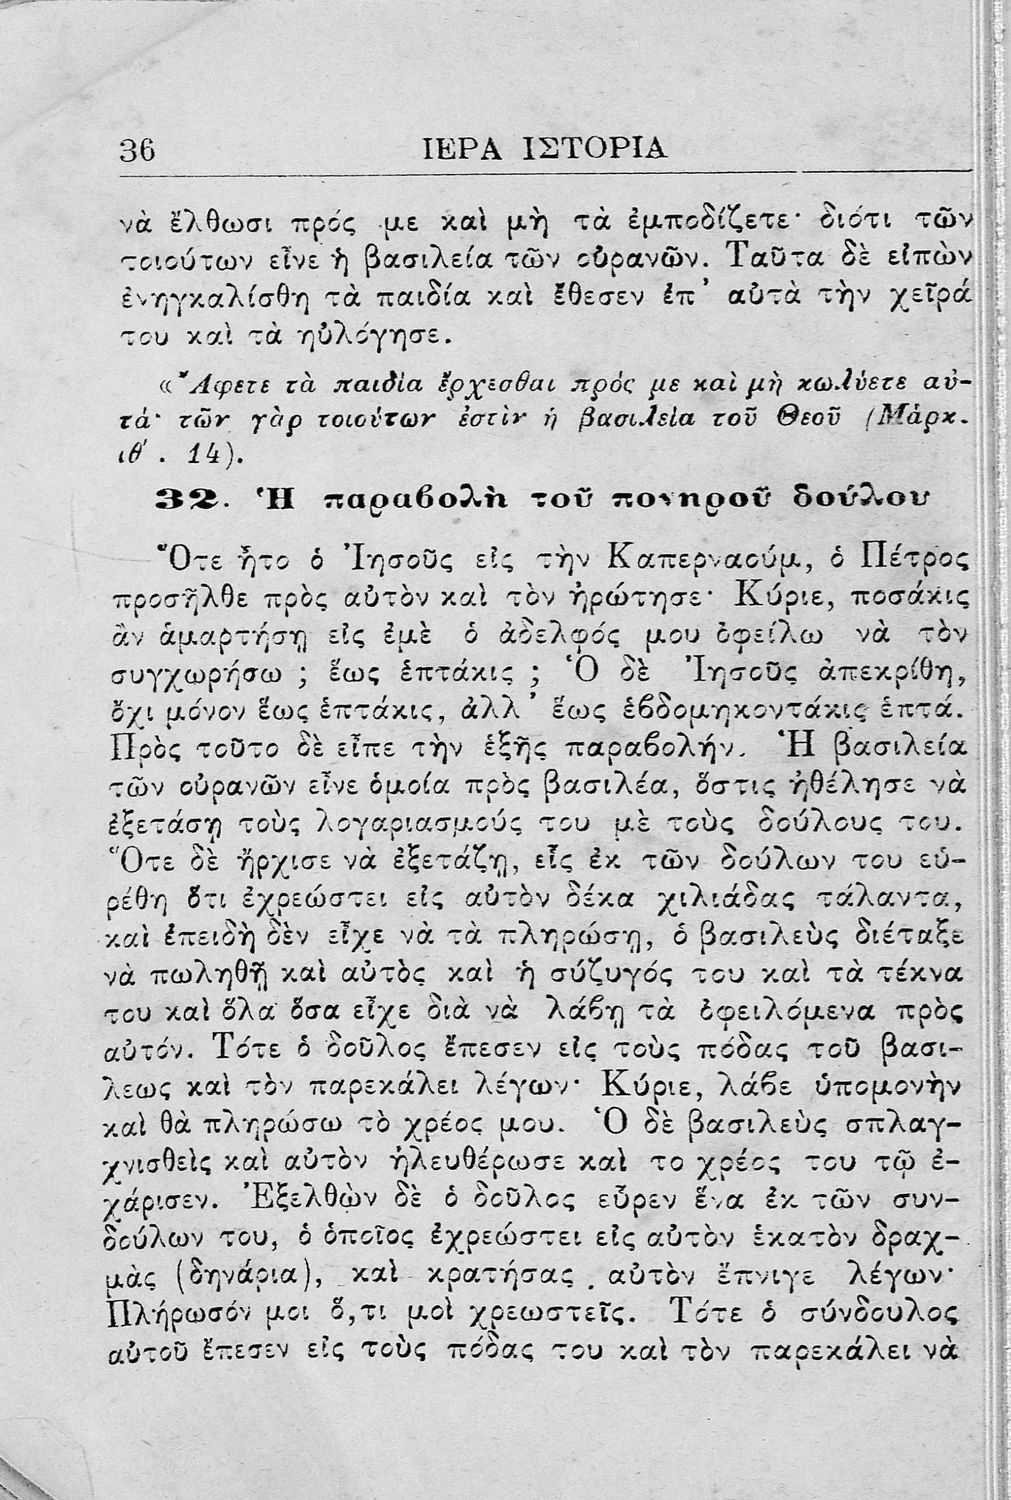 36 ΙΕΡΑ ΙΣΤΟΡΙΑ
νὰ ἔλθωσι πρός με καὶ μὴ τὰ ἐμποδίζετε· διότι τῶν
τοιούτων εἶνε ἡ βασιλεία τῶν οὐρανῶν. Ταῦτα δὲ εἰπὼν
ἐνηγκαλίσθη τὰ παιδία καὶ ἔθεσεν ἐπ’ αὐτὰ τὴν χεῖρά
του καὶ τὰ ηὐλόγησε.
«Ἄφετε τὰ παιδία ἔρχεσθαι πρός με καὶ μὴ κωλύετε αὐ-
τά· τῶν γὰρ τοιούτων ἐστὶν ἡ βασιλεία τοῦ Θεοῦ (Μάρκ.
ιθ΄. 14).
32. Ἡ παραβολὴ τοῦ πονηροῦ δούλου
Ὅτε ἦτο ὁ Ἰησοῦς εἰς τὴν Καπερναούμ, ὁ Πέτρος
προσῆλθε πρὸς αὐτὸν καὶ τὸν ἠρώτησε· Κύριε, ποσάκις
ἂν ἁμαρτήσῃ εἰς ἐμὲ ὁ ἀδελφός μου ὀφείλω νὰ τὸν
συγχωρήσω ; ἕως ἑπτάκις ; Ὁ δὲ Ἰησοῦς ἀπεκρίθη,
ὄχι μόνον ἕως ἑπτάκις, ἀλλ’ ἕως ἑβδομηκοντάκις ἑπτά.
Πρὸς τοῦτο δὲ εἶπε τὴν ἑξῆς παραβολήν. Ἡ βασιλεία
τῶν οὐρανῶν εἶνε ὁμοία πρὸς βασιλέα, ὅστις ἠθέλησε νὰ
ἐξετάσῃ τοὺς λογαριασμούς του μὲ τοὺς δούλους του.
Ὅτε δὲ ἤρχισε νὰ ἐξετάζῃ, εἷς ἐκ τῶν δούλων του εὑ-
ρέθη ὅτι ἐχρεώστει εἰς αὐτὸν δέκα χιλιάδας τάλαντα,
καὶ ἐπειδὴ δὲν εἶχε νὰ τὰ πληρώσῃ, ὁ βασιλεὺς διέταξε
νὰ πωληθῇ καὶ αὐτὸς καὶ ἡ σύζυγός του καὶ τὰ τέκνα
του καὶ ὅλα ὅσα εἶχε διὰ νὰ λάβῃ τὰ ὀφειλόμενα πρὸς
αὐτόν. Τότε ὁ δοῦλος ἔπεσεν εἰς τοὺς πόδας τοῦ βασι-
λεως καὶ τὸν παρεκάλει λέγων· Κύριε, λάβε ὑπομονὴν
καὶ θὰ πληρώσω τὸ χρέος μου. Ὁ δὲ βασιλεὺς σπλαγ-
χνισθεὶς καὶ αὐτὸν ἠλευθέρωσε καὶ το χρέος του τῷ ἐ-
χάρισεν. Ἐξελθὼν δὲ ὁ δοῦλος εὗρεν ἕνα ἐκ τῶν συν-
δούλων του, ὁ ὁποῖος ἐχρεώστει εἰς αὐτὸν ἑκατὸν δραχ-
μὰς (δηνάρια), καὶ κρατήσας αὐτὸν ἔπνιγε λέγων·
Πλήρωσόν μοι ὅ,τι μοὶ χρεωστεῖς. Τότε ὁ σύνδουλος
αὐτοῦ ἔπεσεν εἰς τοὺς πόδας του καὶ τὸν παρεκάλει νὰ